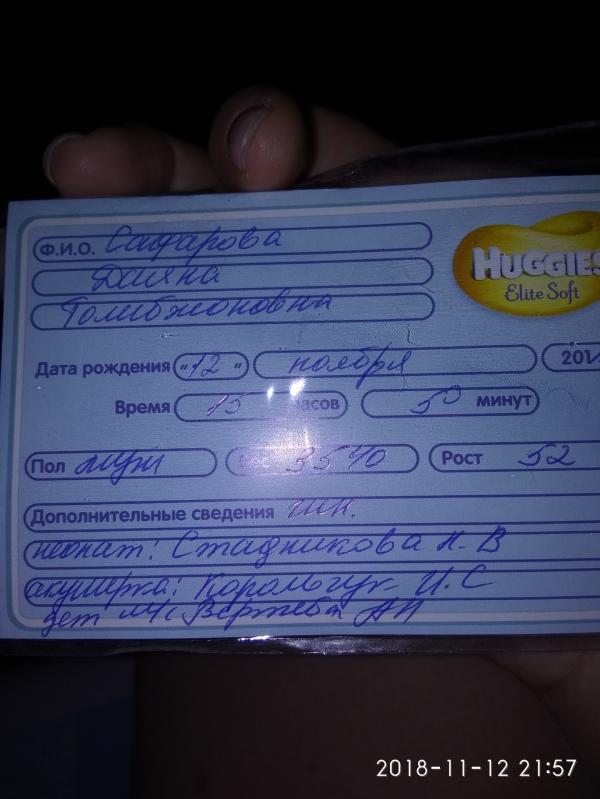 Ф.И.О. Сафарова
Даяна
Голибжоновна
HUGGIES
Elite Soft
Дата рождения "12" ноября 201
Время 15 часов 50 минут
Пол муж Вес 3540 Рост 52
Дополнительные сведения
неонат: Стадникова Н. В
акушерка: Корольчук И. С
дет м/с
2018-11-12 21:57